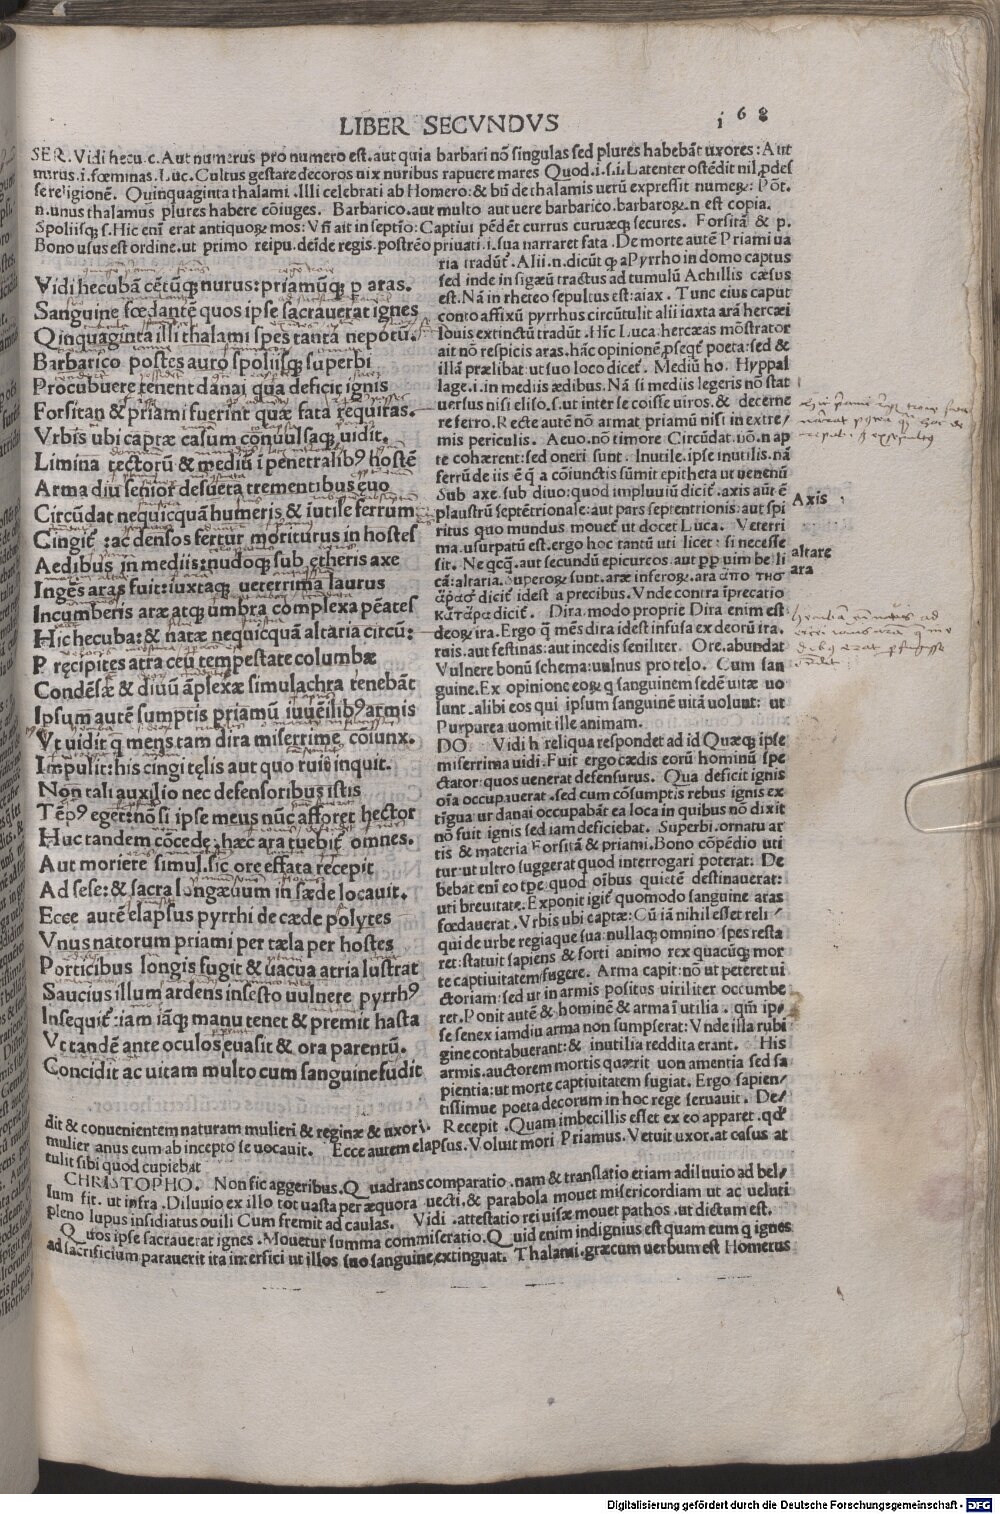 LIBER SECVNDVS
i 6 8
SER. Vidi hecu.c. Aut numerus pro numero est. aut quia barbari nō singulas sed plures habebāt uxores: Aut
nurus.i. fœminas. Luc. Cultus gestare decoros uix nuribus rapuere mares Quod.i.s.i. Latenter ostēdit nil ꝓdes
se religionē. Quinquaginta thalami. Illi celebrati ab Homero: & bñ de thalamis uerū expressit numeꝝ: Pōt.
n. unus thalamus plures habere cōiuges. Barbarico. aut multo aut uere barbarico. barbaroꝝ.n est copia.
Spoliisq; s. Hic enī erat antiquoꝝ mos: Vn̄ ait in septio: Captiui pēdēt currus curuæq; secures. Forsitā & p.
Bono usus est ordine. ut primo reipu. deīde regis. postrēo priuati.i. sua narraret fata. De morte autē Priami ua
Vidi hecubā cētūq; nurus: priamūq; p aras.
Sanguine fœdantē quos ipse sacrauerat ignes
Qinquaginta illi thalami spes tanta nepotū.
Barbarico postes auro spoliisq; superbi
Procubuere tenent danai qua deficit ignis
Forsitan & priami fuerint quæ fata requiras.
Vrbis ubi captæ casum conuulsaq; uidit.
Limina tectorū & mediū ī penetralibꝰ hostē
Arma diu senior desueta trementibus euo
Circūdat nequicquā humeris & iutile ferrum
Cingit̄ : ac densos fertur moriturus in hostes
Aedibus in mediis: nudoq; sub etheris axe
Ingēs aras fuit: iuxtaq; ueterrima laurus
Incumberis aræ atq; umbra complexa pēates
Hic hecuba: & natæ nequicquā altaria circū:
P ręcipites atra ceu tempestate columbæ
Condēsæ & diuū āplexæ simulachra tenebāt
Ipsum autē sumptis priamū iuuēilibꝰ armis
Vt uidit q̄ mens tam dira miserrime coīunx.
Impulit: his cingi tęlis aut quo ruis inquit.
Non tali auxilio nec defensoribus istis
Tēpꝰ eget: nō si ipse meus nūc afforet hector
Huc tandem cōcede: hæc ara tuebit̄ omnes.
Aut moriere simul. sic ore effata recepit
Ad sese: & sacra longæuum in sæde locauit.
Ecce autē elapsus pyrrhi de cæde polytes
Vnus natorum priami per tæla per hostes
Porticibus longis fugit & uacua atria lustrat
Saucius illum ardens infesto uulnere pyrrhꝰ
Insequit̄: iam iāq; manu tenet & premit hasta
Vt tandē ante oculos euasit & ora parentū.
Concidit ac uitam multo cum sanguine fudit
ria tradūt̄. Alii.n. dicūt ꝙ a Pyrrho in domo captus
sed inde in sigæū tractus ad tumulū Achillis cæsus
est. Nā in rheteo sepultus est: aiax. Tunc eius caput
conto affixū pyrrhus circūtulit alii iuxta arā hercæi
Iouis extinctū tradūt. Hic Luca: hercæas mōstrator
ait nō respicis aras. hāc opinionē ꝓseqt̄ poeta: sed &
illā prælibat ut suo loco dicet̄. Mediū ho. Hyppal
lage.i. in mediis ædibus. Nā si mediis legeris nō stat
uersus nisi eliso.s. ut inter se coisse uiros. & decerne
re ferro. Recte autē nō armat priamū nisi in extre/
mis periculis. Aeuo. nō timore Circūdat. uō.n ap
te cohærent: sed oneri sunt. Inutile. ipse inutilis. nā
ferrū de iis ē q̄ a cōiunctis sūmit epitheta ut uenenū
Sub axe. sub diuo: quod impluuiū dicit̄. axis aūt ē
plaustrū septētrionale: aut pars septentrionis: aut spi
ritus quo mundus mouet̄ ut docet Luca. Veterri
ma. usurpatū est. ergo hoc tantū uti licet: si necesse
sit. Ne qcq̄. aut secundū epicureos aut ꝓp uim belli
cā: altaria. Superoꝝ sunt. aræ inferoꝝ. ara ἀπο τησ
ἀρασ dicit̄ idest a precibus. Vnde contra īprecatio
κατάρα dicit̄. Dira. modo proprie Dira enim est
deoꝝ ira. Ergo q̄ mēs dira idest infusa ex deorū ira.
ruis. aut festinas: aut incedis seniliter. Ore. abundat
Vulnere bonū schema: uulnus pro telo. Cum san
guine. Ex opinione eoꝝ q̄ sanguinem sedē uitæ uo
lunt. alibi eos qui ipsum sanguinē uitā uolunt: ut
Purpurea uomit ille animam.
DO. Vidi h reliqua respondet ad id Quæq; ipse
miserrima uidi. Fuit ergo cædis eorū hominū spe
ctator: quos uenerat defensurus. Qua deficit ignis
oīa occupauerat. sed cum cōsumptis rebus ignis ex
tīgua ur danai occupabāt ea loca in quibus nō dixit
nō fuit ignis sed iam deficiebat. Superbi. ornatu ar
tis & materia Forsitā & priami. Bono cōpēdio uti
tur: ut ultro suggerat quod interrogari poterat: De
bebat enī eo tꝑe quod oībus quietē destinauerat:
uti breuitate. Exponit igit̄ quomodo sanguine aras
fœdauerat. Vrbis ubi captæ: Cū iā nihil esset reli/
qui de urbe regiaque sua: nullaq; omnino spes resta
ret: statuit sapiens & forti animo rex quacūq; mor
te captiuitatem fugere. Arma capit: nō ut peteret ui
ctoriam: sed ut in armis positus uiriliter occumbe
ret. Ponit autē & hominē & arma īutilia. qm̄ ip/
se senex iamdiu arma non sumpserat: Vnde illa rubi
gine contabuerant: & inutilia reddita erant. His
armis. auctorem mortis quærit non amentia sed sa
pientia: ut morte captiuitatem fugiat. Ergo sapien/
tissimue poeta decorum in hoc rege seruauit. De/
Axis
altare
ara
dit & conuenientem naturam mulieri & reginæ & uxori. Recepit. Quam imbecillis esset ex eo apparet. qd̓
mulier anus eum ab incepto se uocauit. Ecce autem elapsus. Voluit mori Priamus. Vetuit uxor. at casus at
tulit sibi quod cupiebat
CHRISTOPHO. Non sic aggeribus. Quadrans comparatio. nam & translatio etiam adiluuio ad bel/
lum fit. ut infra. Diluuio ex illo tot uasta per æquora uecti. & parabola mouet misericordiam ut ac ueluti
pleno lupus insidiatus ouili Cum fremit ad caulas. Vidi. attestatio rei uisæ mouet pathos. ut dictum est.
Quos ipse sacrauerat ignes. Mouetur summa commiseratio. Quid enim indignius est quam eum q ignes
ad sacrificium parauerit ita interfici ut illos suo sanguine extinguat. Thalami. græcum uerbum est Homerus
Digitalisierung gefördert durch die Deutsche Forschungsgemeinschaft - DFG